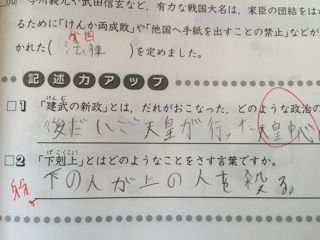 今川義元や武田信玄など、有力な戦国大名は、家臣の団結をはか
るために「けんか両成敗」や「他国へ手紙を出すことの禁止」などが
分国
かれた（法律）を定めました。
記述力アップ
□1 「建武の新政」とは、だれがおこなった、どのような政治の
けんむ
後だいご天皇が行った天皇中心
□2 「下剋上」とはどのようなことをさす言葉ですか。
げこくじょう
身分 下の人が上の人を殺る。